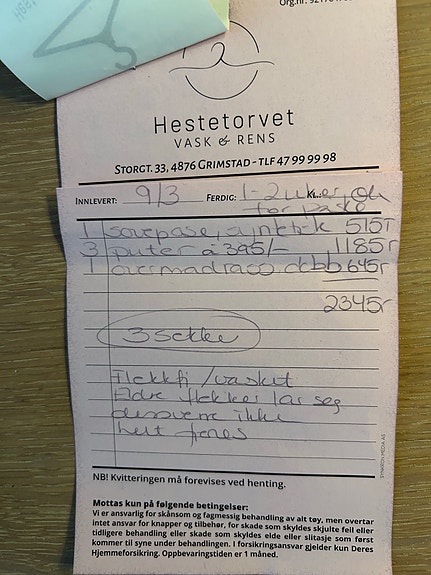 Org.nr. 921
Hestetorvet
VASK & RENS
STORGT. 33, 4876 GRIMSTAD - TLF 47 99 99 98
INNLEVERT: 9/3 FERDIG: 1-2 uker, ok KL.:
før påske
1 sovepose, 515,-
3 puter á 395/- 1185,-
1 overmadrass dobb 645,-
2345,-
3 sekker
Flekkfj/vasket
Eldre flekker lar seg
dessverre ikke
helt fjernes
NB! Kvitteringen må forevises ved henting.
SYNKRON MEDIA AS
Mottas kun på følgende betingelser:
Vi er ansvarlig for skånsom og fagmessig behandling av alt tøy, men overtar
intet ansvar for knapper og tilbehør, for skade som skyldes skjulte feil eller
tidligere behandling eller skade som skyldes elde eller slitasje som først
kommer til syne under behandlingen. I forsikringsansvar gjelder kun Deres
Hjemmeforsikring. Oppbevaringstiden er 1 måned.